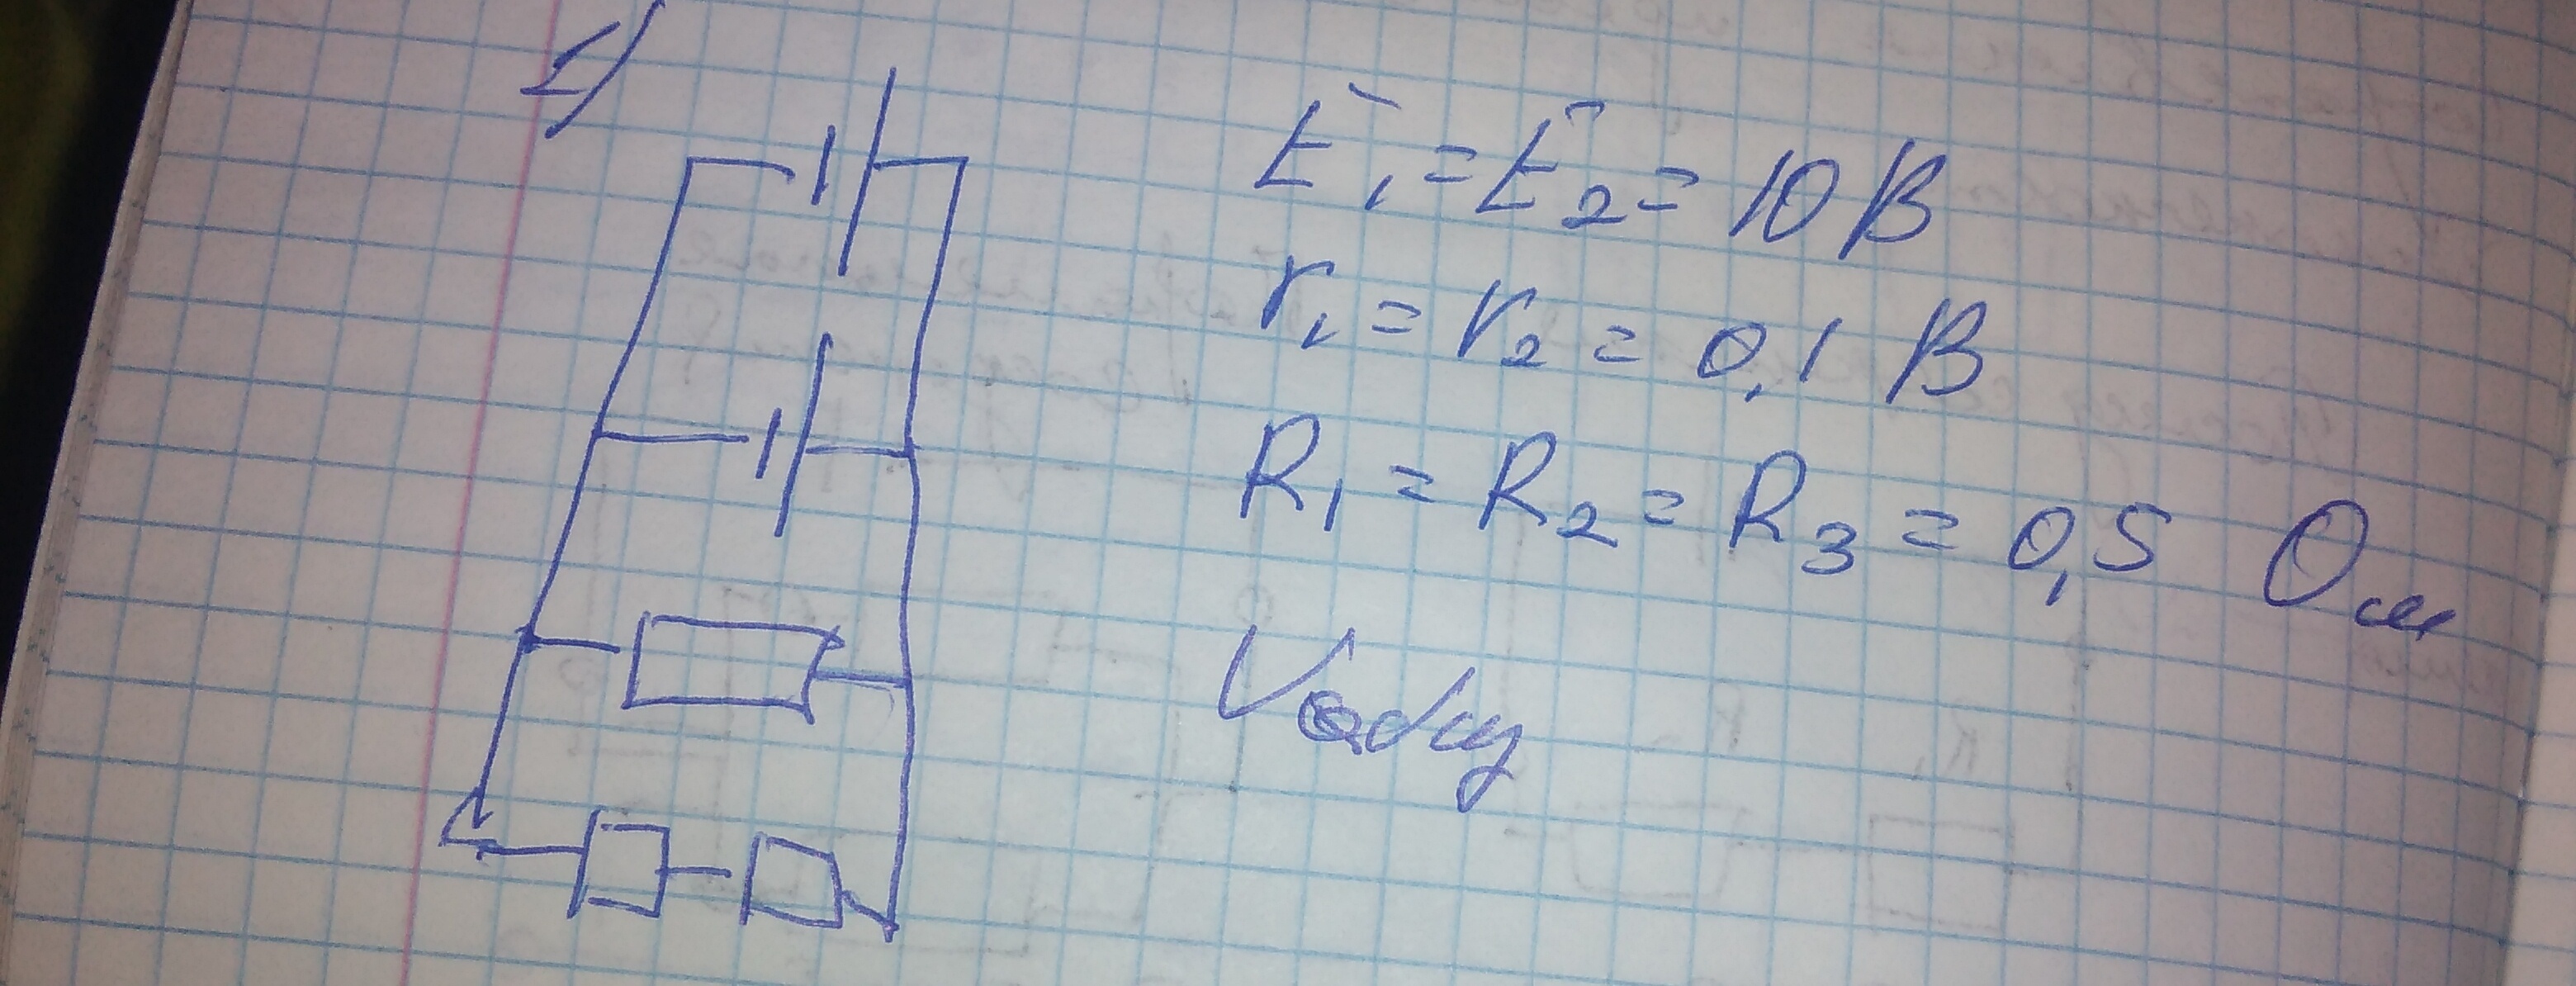 2/
E₁ = E₂ = 10 В
r₁ = r₂ = 0,1 В
R₁ = R₂ = R₃ = 0,5 Ом